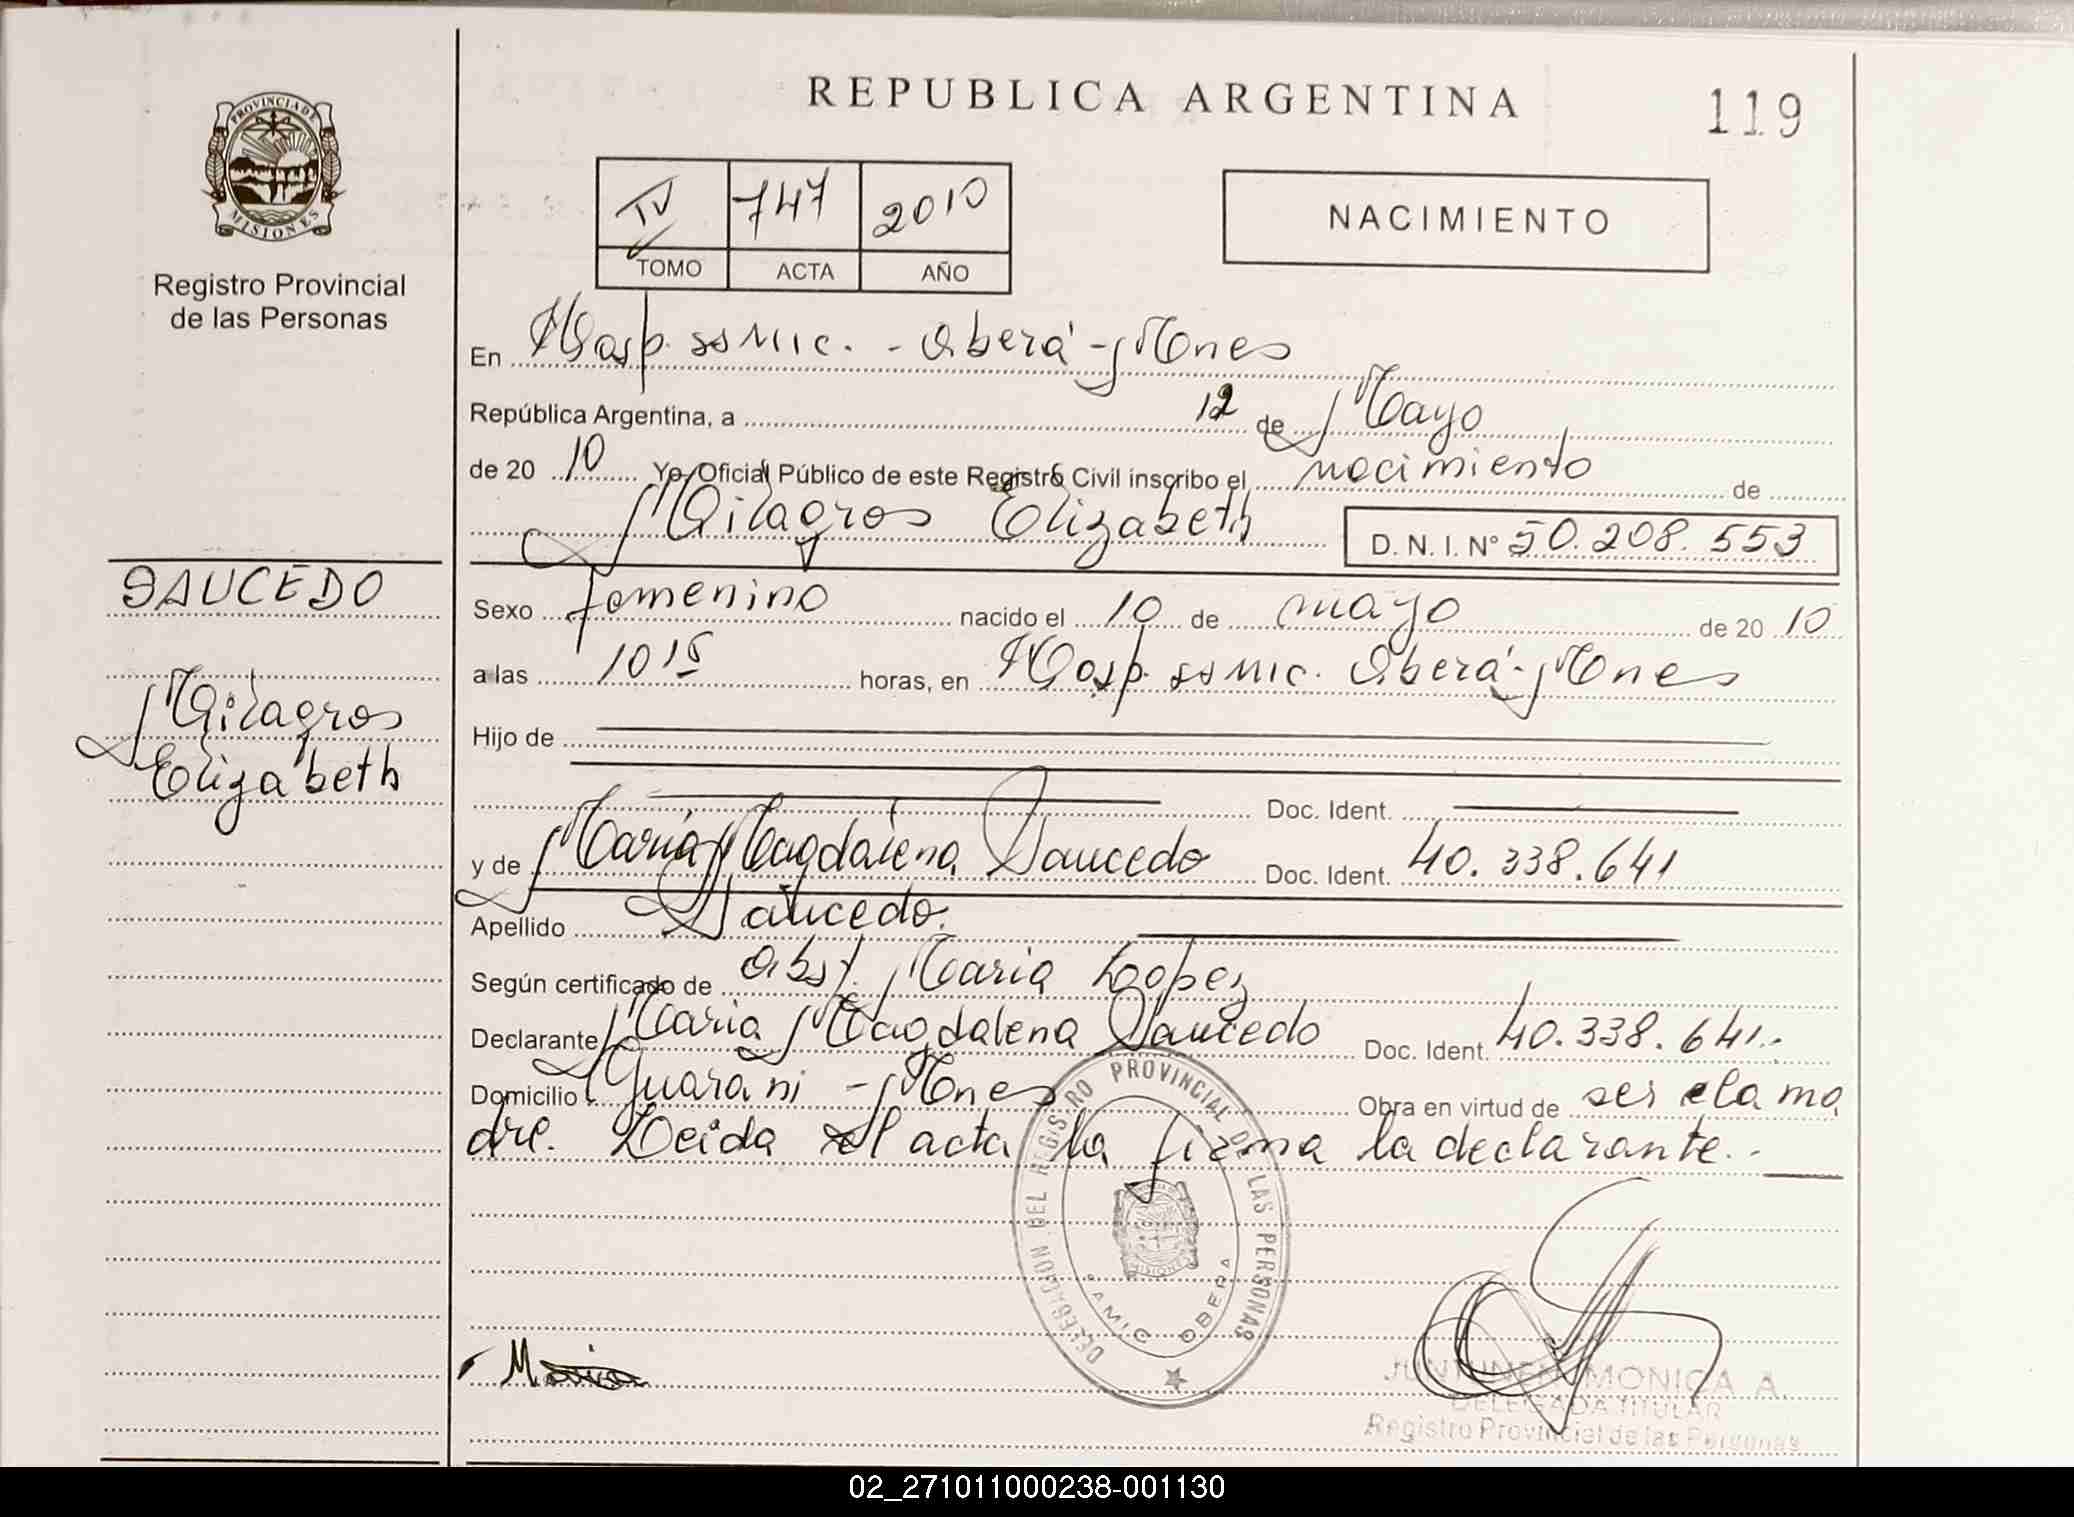 REPUBLICA ARGENTINA
119
PROVINCIA DE
MISIONES
Registro Provincial
de las Personas
IV 747 2010
TOMO ACTA AÑO
NACIMIENTO
En Hosp. ssmic. - Oberá - Mnes
República Argentina, a 12 de Mayo
de 20 10 Yo Oficial Público de este Registro Civil inscribo el nacimiento de
Milagros Elizabeth D. N. I. N° 50.208.553
SAUCEDO
Milagros
Elizabeth
Sexo femenino nacido el 10 de mayo de 20 10
a las 1015 horas, en Hosp. ssmic. Oberá - Mnes
Hijo de
Doc. Ident.
y de Maria Magdalena Saucedo Doc. Ident. 40.338.641
Apellido Saucedo.
Según certificado de Obst. Maria Lopez
Declarante Maria Magdalena Saucedo Doc. Ident. 40.338.641.-
Domicilio Guarani - Mnes Obra en virtud de ser ela ma
dre. Leida el acta la firma la declarante.-
DELEGACION DEL REGISTRO PROVINCIAL DE LAS PERSONAS
OBERA
MISIONES
Maria
JUNTUNEN MONICA A.
DELEGADA TITULAR
Registro Provincial de las Personas
02_271011000238-001130